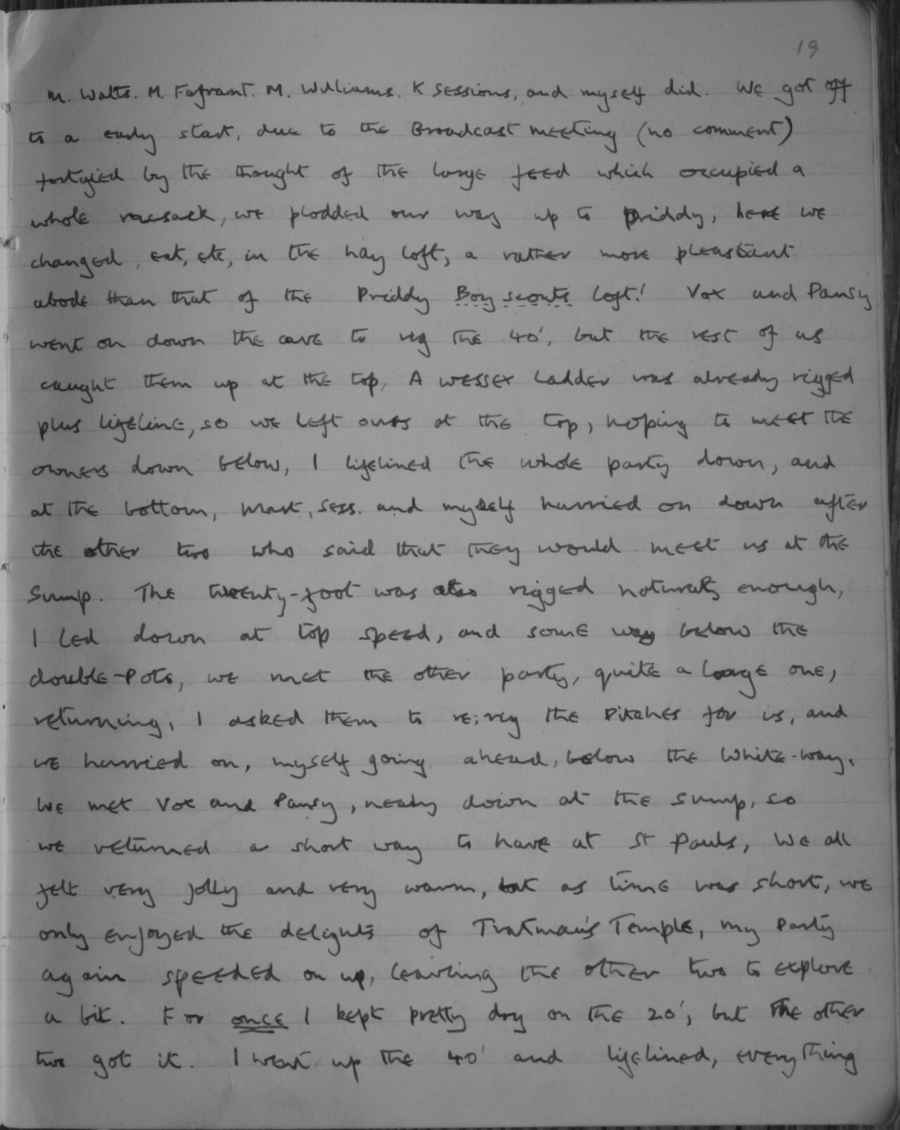 19
M. Watts. M Fafrant. M. Williams. K Sessions, and myself did. We got off
to a early start, due to the Broadcast meeting (no comment)
fortified by the thought of the large feed which occupied a
whole rucsack, we plodded our way up to Priddy, here we
changed, eat, etc, in the hay loft, a rather more pleasant
abode than that of the Priddy Boy scouts loft! Vox and Pansy
went on down the cave to rig the 40', but the rest of us
caught them up at the top, A wessex ladder was already rigged
plus lifeline, so we left ours at the top, hoping to meet the
owners down below, I lifelined the whole party down, and
at the bottom, Mart, Sess. and myself hurried on down after
the other two who said that they would meet us at the
Sump. The twenty-foot was also rigged naturaly enough,
I led down at top speed, and some way below the
double-Pots, we met the other party, quite a large one,
returning, I asked them to re;rig the Pitches for us, and
we hurried on, myself going ahead, below the White-way.
We met Vox and Pansy, nearly down at the sump, so
we returned a short way to have at St Pauls, We all
felt very jolly and very warm, but as time was short, we
only enjoyed the delights of Tratman's Temple, my Party
again speeded on up, leaving the other two to explore
a bit. For once I kept pretty dry on the 20', but the other
two got it. I went up the 40' and lifelined, everything